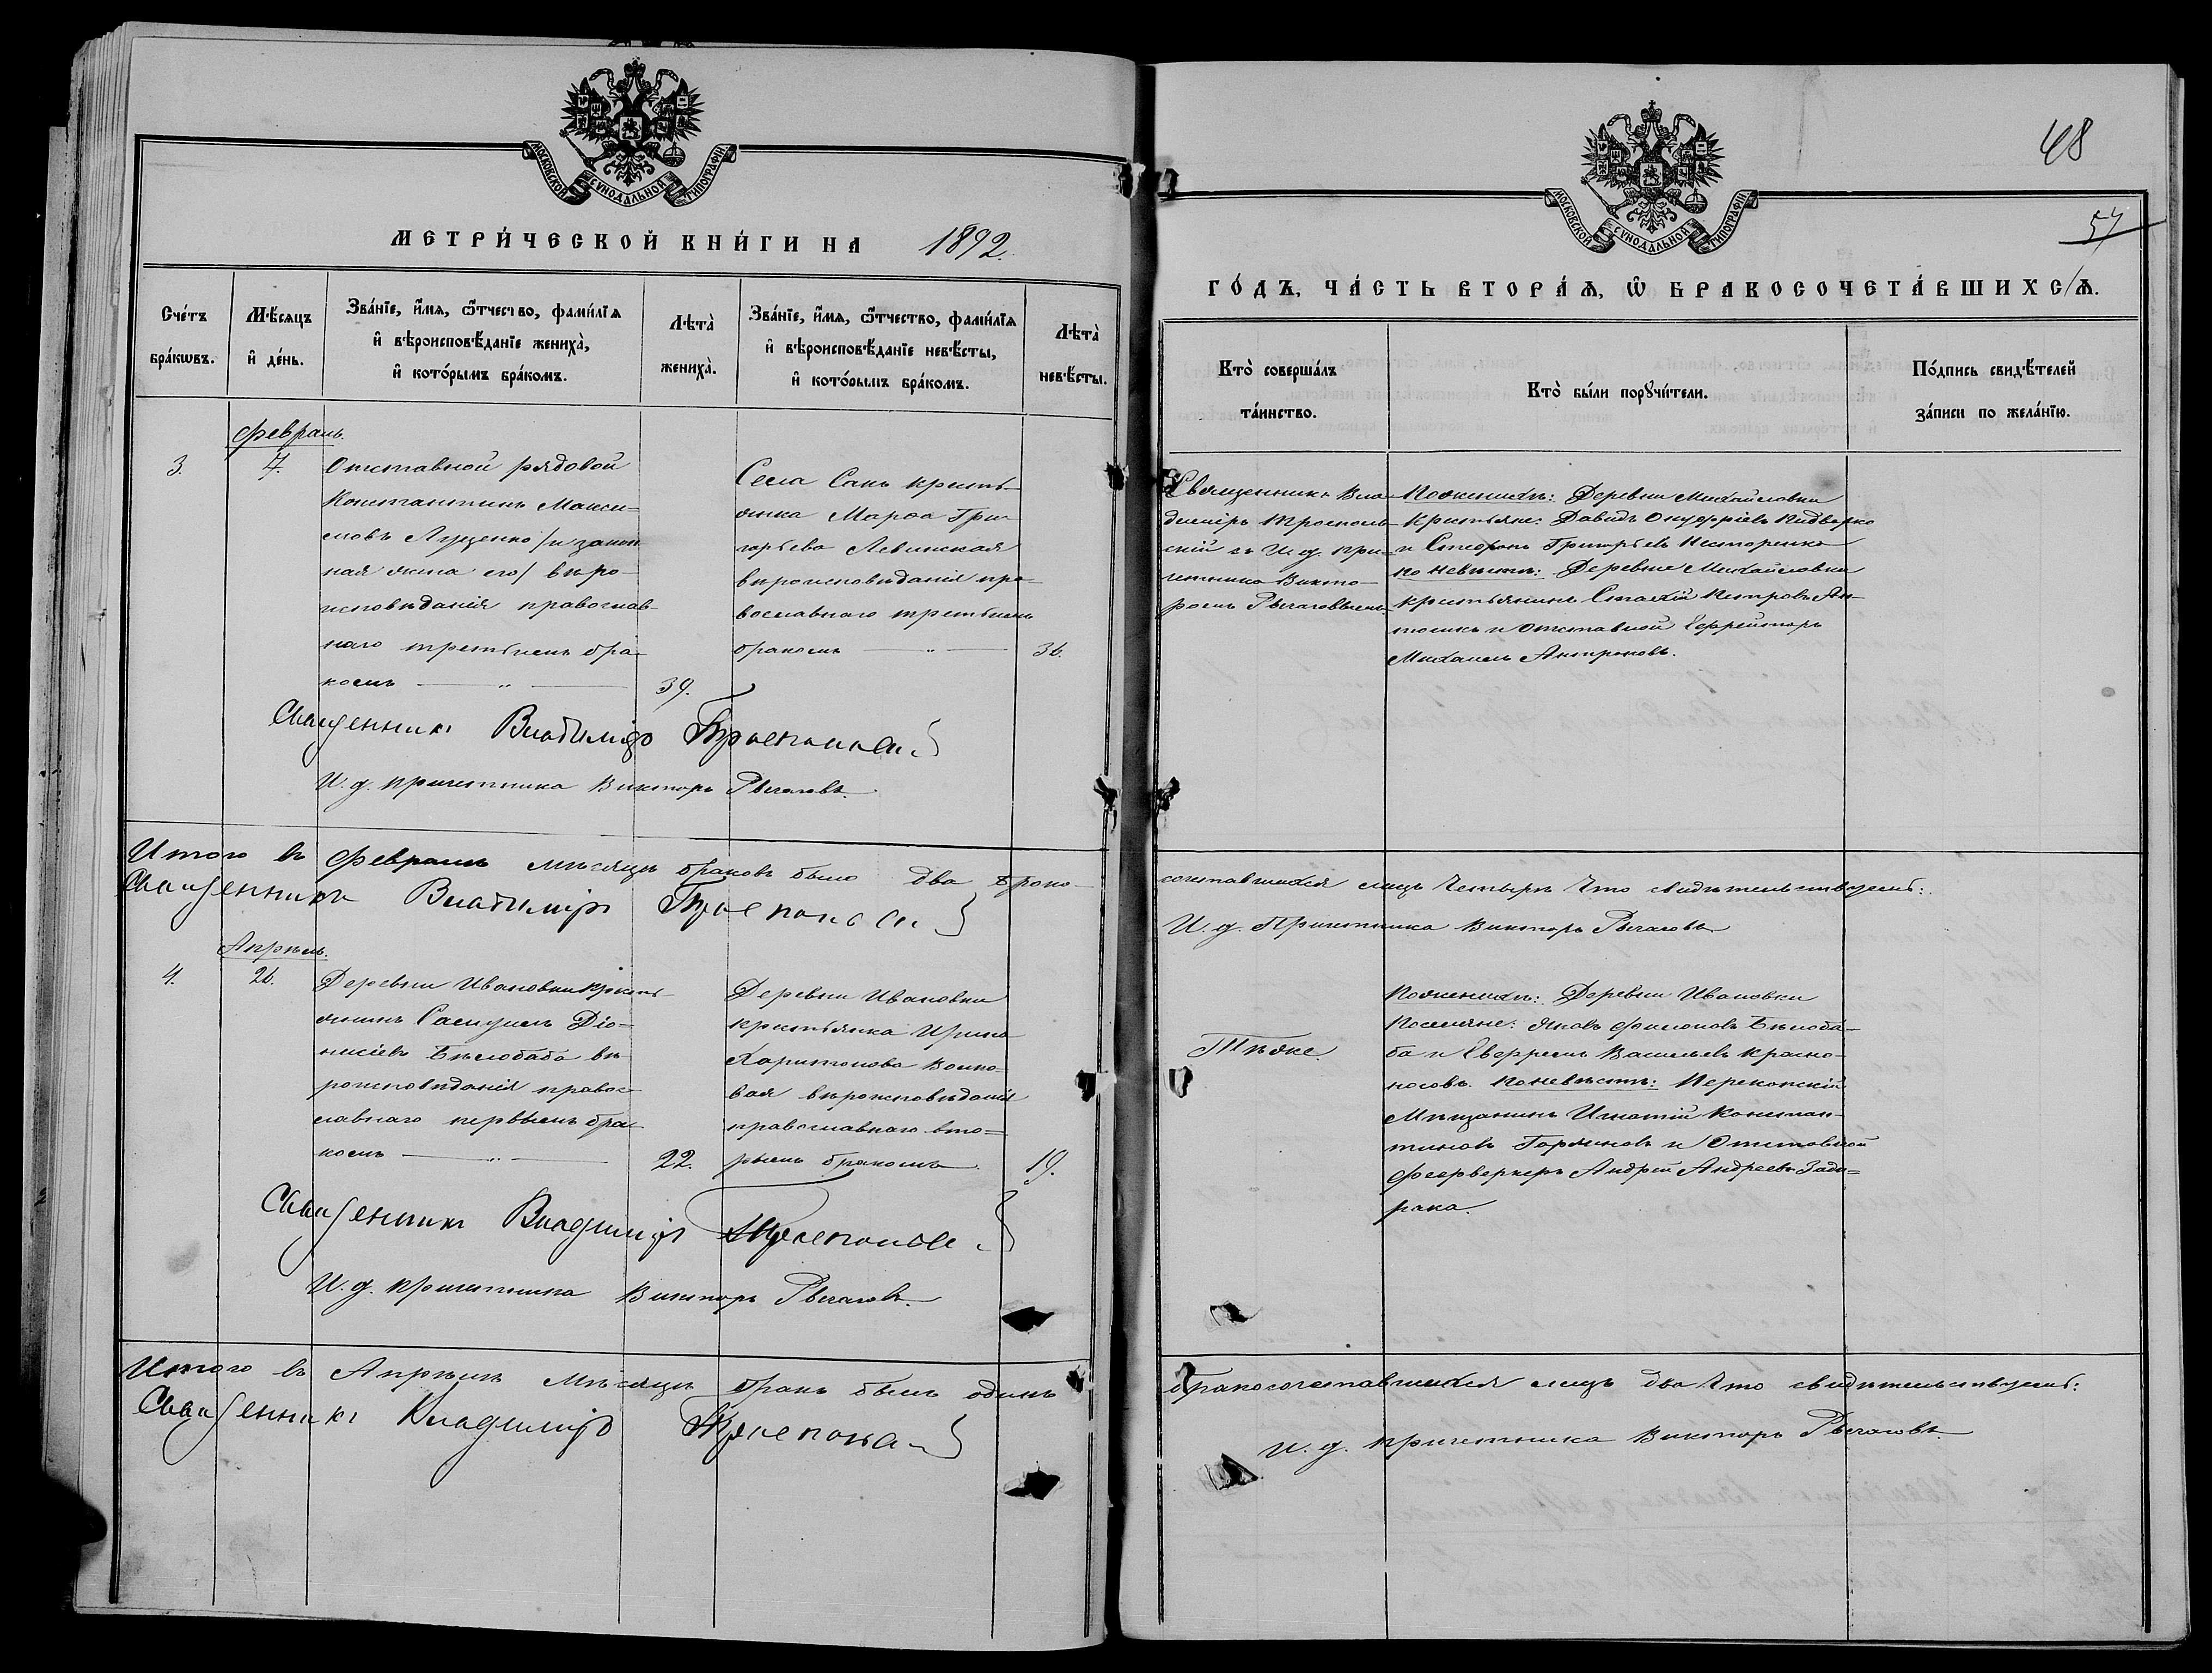 МОСКОВСКОЙ СѴНОДАЛЬНОЙ ТИПОГРАФІИ.
МЕТРИ́ЧЕСКОЙ КНИ́ГИ НА 1892.
Сче́тъ бра́кѡвъ.
Мѣ́сяцъ и҆ де́нь.
Зва́нїе, и҆́мя, ѻ҆́тчество, фами́лїя
и҆ вѣроисповѣ́данїе жениха̀,
и҆ кото́рымъ бра́комъ.
Лѣта̀ жениха̀.
Зва́нїе, и҆́мя, ѻ҆́тчество, фами́лїя
и҆ вѣроисповѣ́данїе невѣ́сты,
и҆ кото́рымъ бра́комъ.
Лѣта̀ невѣ́сты.
Февраль.
3.
7.
Отставной рядовой
Константинъ Макси=
мовъ Луценко /и закон
ная жена его/ вѣро-
исповѣданія православ-
наго третьимъ бра-
комъ — „ — 39.
Села Санъ кресть-
янка Марѳа Гри-
горьева Левинская
вѣроисповѣданія пра-
вославнаго третьимъ
бракомъ — „ — 36.
Священникъ Владиміръ
И. д. причетника Викторъ Рычаговъ.
Итого въ Февралѣ мѣсяцѣ браковъ было два брако-
Священникъ Владиміръ
Апрѣль.
4.
26.
Деревни Ивановки кресть-
янинъ Самуилъ Діо-
нисіевъ Бѣлобаба вѣ-
роисповѣданія правос-
лавнаго первымъ бра-
комъ — „ — 22.
Деревни Ивановки
крестьянка Ирина
Харитонова Волко-
вая вѣроисповѣданія
православнаго вто=
рымъ бракомъ. 19.
Священникъ Владиміръ
И. д. причетника Викторъ Рычаговъ.
Итого въ Апрѣлѣ Мѣсяцѣ бракъ былъ одинъ
Священникъ Владиміръ
48
57
МОСКОВСКОЙ СѴНОДАЛЬНОЙ ТИПОГРАФІИ.
ГО́ДЪ, ЧА́СТЬ ВТОРА́Ѧ, Ѡ҆ БРАКОСОЧЕТА́ВШИХСѦ.
Кто̀ соверша́лъ
та́инство.
Кто̀ бы́ли порꙋчи́тели.
По́дпись свидѣ́телей
за́писи по жела́нїю.
Священникъ Вла-
диміръ
скій съ И. д. при-
четника Викто-
ромъ Рычаговымъ.
По женихѣ: Деревни Михайловки
Крестьяне: Давидъ Онуфріевъ Кидворко
и Стефанъ Григорьевъ Нестеренко
по невѣстѣ: Деревни Михайловки
крестьянинъ Петровъ Ан-
и Отставной Ефрейторъ
Михаилъ Антроповъ.
сочетавшихся лицъ четыре что свидѣтельствуемъ:
И. д. Причетника Викторъ Рычаговъ
Тѣже.
По женихѣ: Деревни Ивановки
Поселяне: Яковъ Филиповъ Бѣлоба-
ба и Евфремъ Васильевъ Красно-
носовъ. По невѣстѣ: Перекопскій
Мѣщанинъ Игнатій Констан-
тиновъ и Отставной
фейерверкеръ Андрей Андреевъ Задо-
рака.
бракосочетавшихся лицъ два что свидѣтельствуемъ:
И. д. причетника Викторъ Рычаговъ.